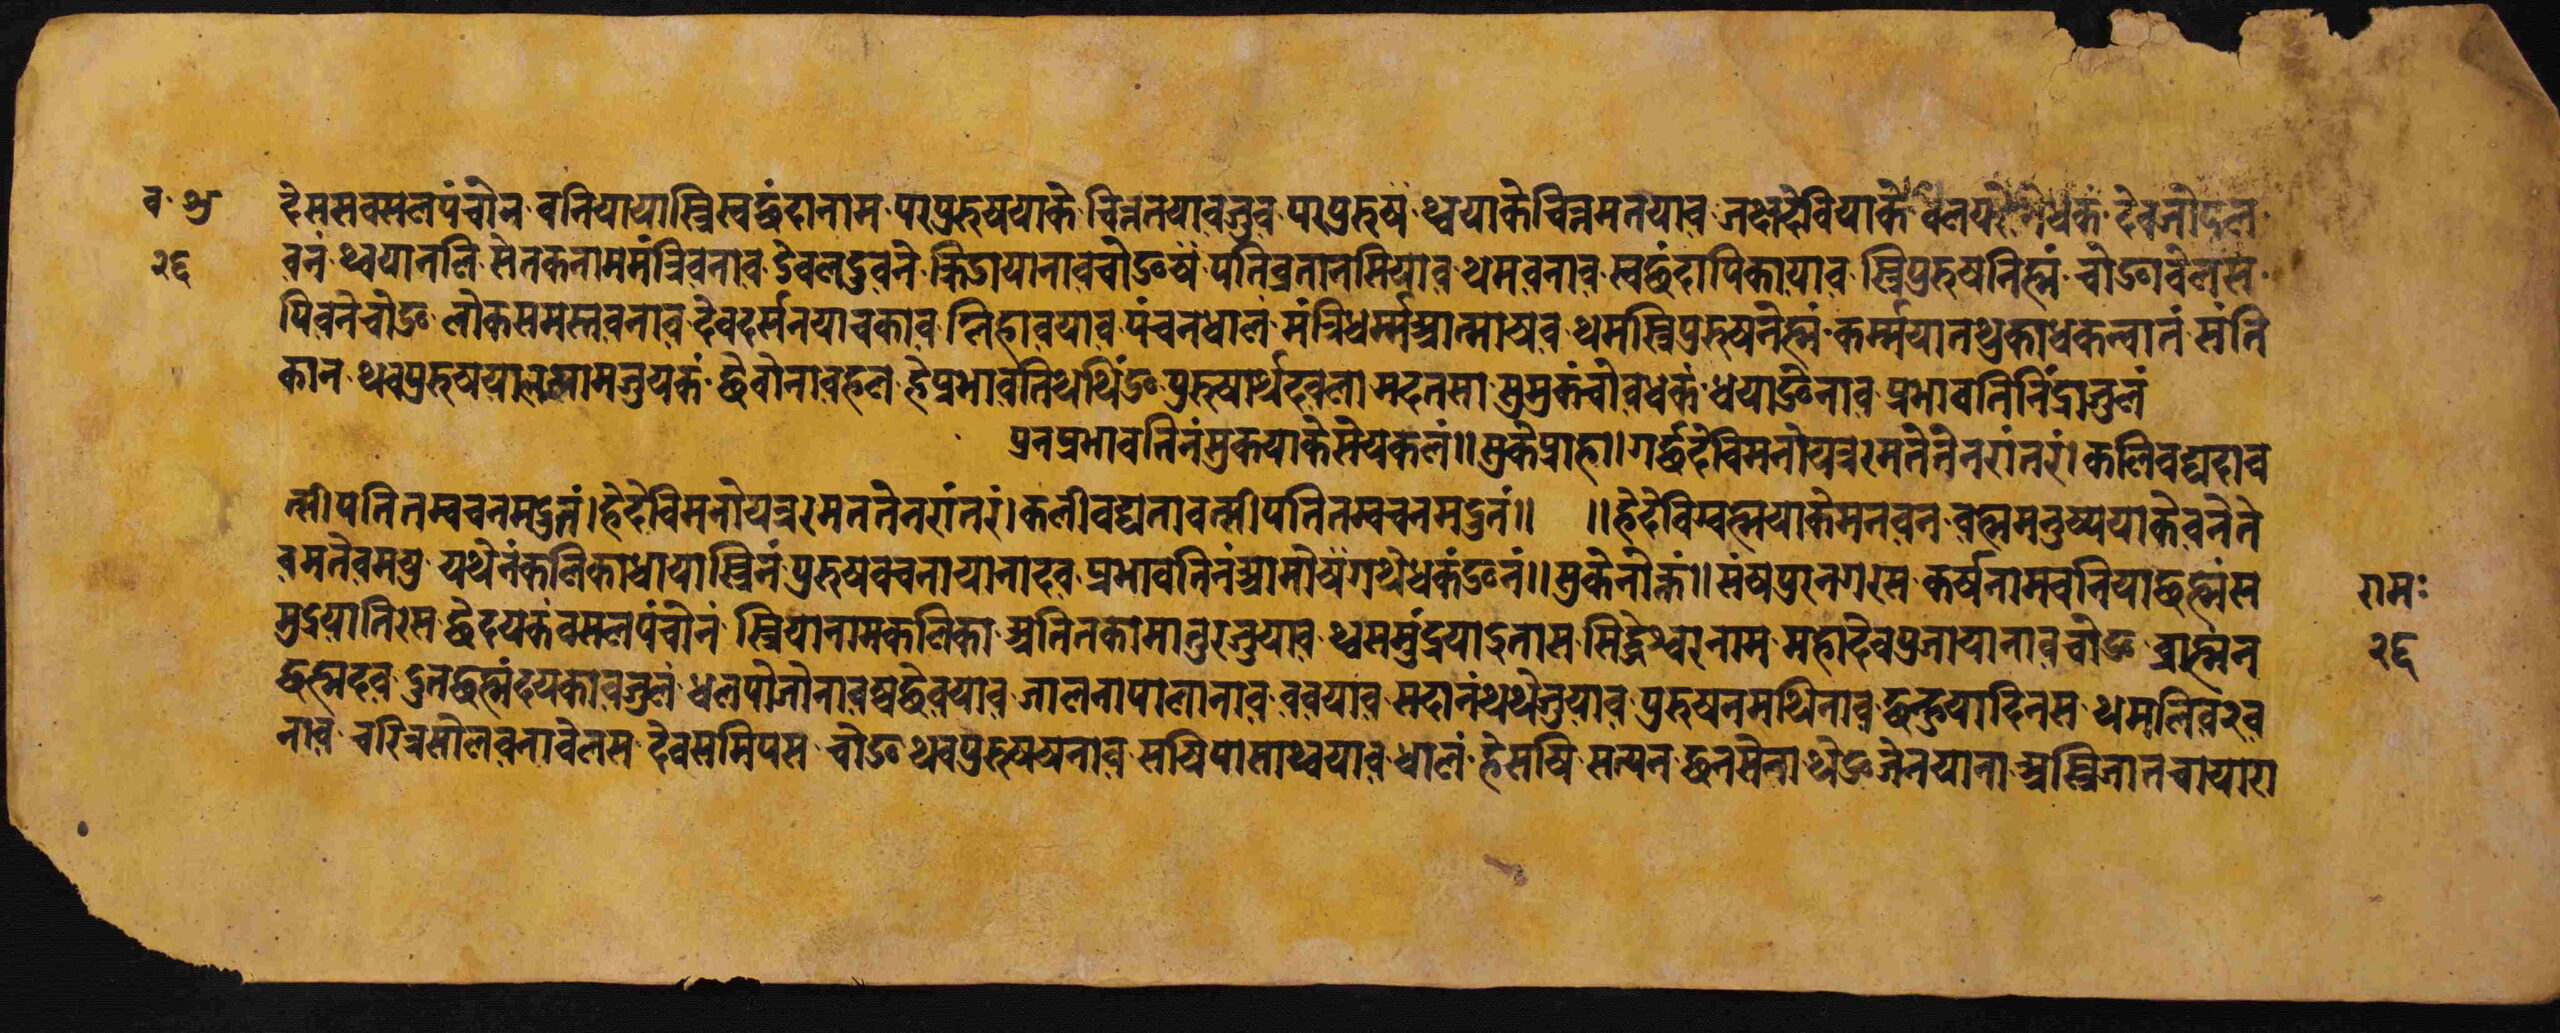 देससवसलपंचोन वनियायास्त्रिस्वछंदानाम परप्रुरुषयाके चिन्ननयावजुव परप्रुरुषं थ्वयाकेचिन्नमनयाव जक्षदेवियाके धकं देवजोदल
वनं थ्वयानलि सेनकनाममंत्रिवनाव देवलदुवने क्रिडायानावचोङषं पतिव्रतानसियाव थमवनाव स्वछंदापिकायाव स्त्रिपुरुषनिह्मं चोङावेलस
पिवनेचोङ लोकसमस्तवनाव देवदर्सनयाचकाव लिहावयाव पंचनधालं मंत्रिधर्म्मआत्मायव थमस्त्रिपुरुषनेह्मं कर्म्मयानथुकाधकल्वातं संति
कान थवपुरुषया नामजुयकं छैवोनावहल हेप्रभावतिथथिंङ पुरुषार्थदवला मदनसा सुमुकंचोवधकं धयाङेनाव प्रभावतिनिंद्राजुलं
प्रनप्रभावतिनंसुकयाकेसेयकलं॥ सुकेप्राहा॥ गर्छदेविमनोयत्ररमतेनेनरांनरं। कलिवद्यदाव
त्सीपतितस्वचनमद्रुतं। हेदेविमनोयत्ररमनतेनरांतरं। कलीवद्यतावत्सीपतितस्वचनमद्रुनं॥ ॥ हेदेविग्वह्मयाकेमनवन वह्ममनुष्ययाकेवनेते
वमतेवमषु यथेनंकलिकाधायास्त्रिनं पुरुषवचनायानादव प्रभावतिनंआमोषंगथेधकंङनं॥ सुकेनोक्तं॥ संषपुरनगरस कर्षनामवनियाछह्मंस
मुद्रयातिरस छैदयकंवसलपंचोनं स्त्रियानामकलिका अतितकामातुरजुयाव थ्वसमुंद्रयादुतास सिद्धेश्वरनाम महादेवपुजायानावचोङ ब्राह्मंन
छह्मदव दुनछह्मंदयकावजुलं धलपोजोनावषछैवयाव जालनापालानाव ववयाव सदानंथथेजुयाव पुरुषनमथिनाव छन्हुयादिनस थमलिव२व
नाव चरित्रसोलवनावेलस देवसमिपस चोङ थवपुरुषषनाव सयिपासाथ्वयाव धालं हेसषि सत्यन छनसेना थेङजेनयाना अस्त्रिजातचायारा
व थु
२६
रामः
२६